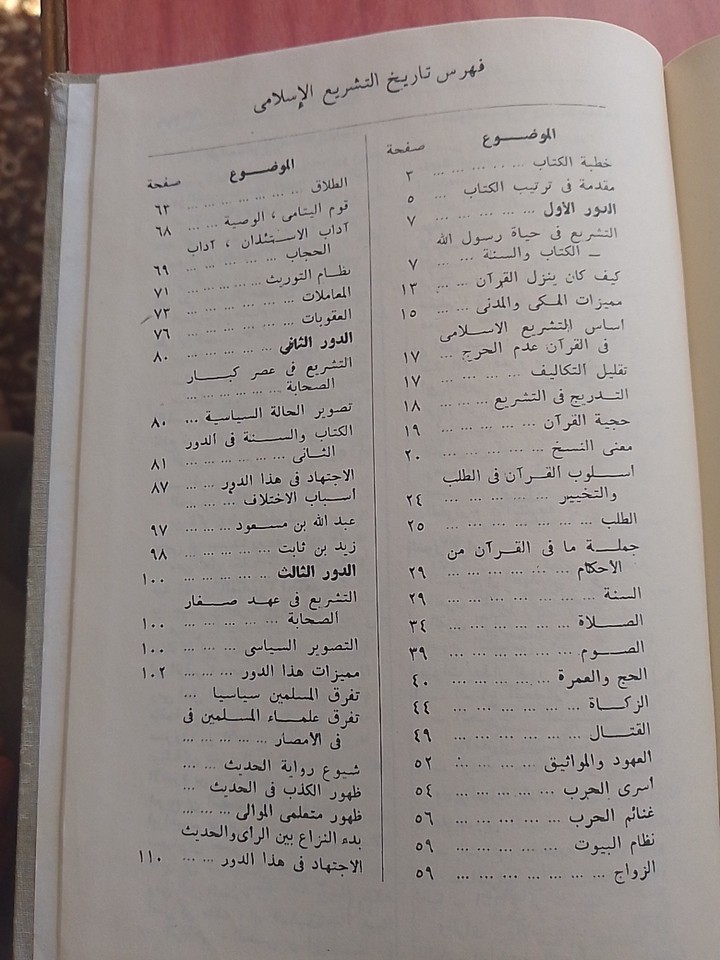 فهرس تاريخ التشريع الإسلامى
الموضــوع صفحة
خطبة الكتاب ... ... ... ... ٣
مقدمة فى ترتيب الكتاب ... ٥
الدور الأول ... ... ... ... ٧
التشريع فى حياة رسول الله
ــ الكتاب والسنة ... ... ٧
كيف كان ينزل القرآن ... ... ١٣
مميزات المكى والمدنى ... ... ١٥
اساس التشريع الاسلامى
فى القرآن عدم الحرج ... ١٧
تقليل التكاليف ... ... ... ... ١٧
التدريج فى التشريع ... ... ... ١٨
حجية القرآن ... ... ... ... ... ١٩
معنى النسخ ... ... ... ... ... ٢٠
اسلوب القرآن فى الطلب
والتخيير ... ... ... ... ... ٢٤
الطلب ... ... ... ... ... ... ٢٥
جملة ما فى القرآن من
الأحكام ... ... ... ... ... ٢٩
السنة ... ... ... ... ... ... ٢٩
الصلاة ... ... ... ... ... ... ٣٤
الصوم ... ... ... ... ... ... ٣٩
الحج والعمرة ... ... ... ... ٤٠
الزكاة ... ... ... ... ... ... ٤٤
القتال ... ... ... ... ... ... ٤٩
العهود والمواثيق ... ... ... ... ٥٢
اسرى الحرب ... ... ... ... ... ٥٤
غنائم الحرب ... ... ... ... ... ٥٦
نظام البيوت ... ... ... ... ... ٥٩
الزواج ... ... ... ... ... ... ... ٥٩
الموضــوع صفحة
الطلاق ... ... ... ... ... ... ... ٦٣
قوم اليتامى ، الوصية ... ... ٦٨
آداب الاستئذان ، آداب
الحجاب ... ... ... ... ... ٦٩
نظام التوريث ... ... ... ... ... ٧١
المعاملات ... ... ... ... ... ... ٧٣
العقوبات ... ... ... ... ... ... ٧٦
الدور الثانى ... ... ... ... ... ٨٠
التشريع فى عصر كبار
الصحابة ... ... ... ... ... ...
تصوير الحالة السياسية ... ٨٠
الكتاب والسنة فى الدور
الثانى ... ... ... ... ... ... ٨١
الاجتهاد فى هذا الدور ... ... ٨٧
اسباب الاختلاف ... ... ...
عبد الله بن مسعود ... ... ... ٩٧
زيد بن ثابت ... ... ... ... ... ٩٨
الدور الثالث ... ... ... ... ... ١٠٠
التشريع فى عهد صغار
الصحابة ... ... ... ... ... ١٠٠
التصوير السياسى ... ... ... ١٠٠
مميزات هذا الدور ... ... ... ١٠٢
تفرق المسلمين سياسيا ...
تفرق علماء المسلمين فى
فى الأمصار ... ... ... ... ...
شيوع رواية الحديث ... ...
ظهور الكذب فى الحديث ...
ظهور متعلمى الموالى ... ... ...
بدء النزاع بين الراى والحديث
الاجتهاد فى هذا الدور ... ... ١١٠